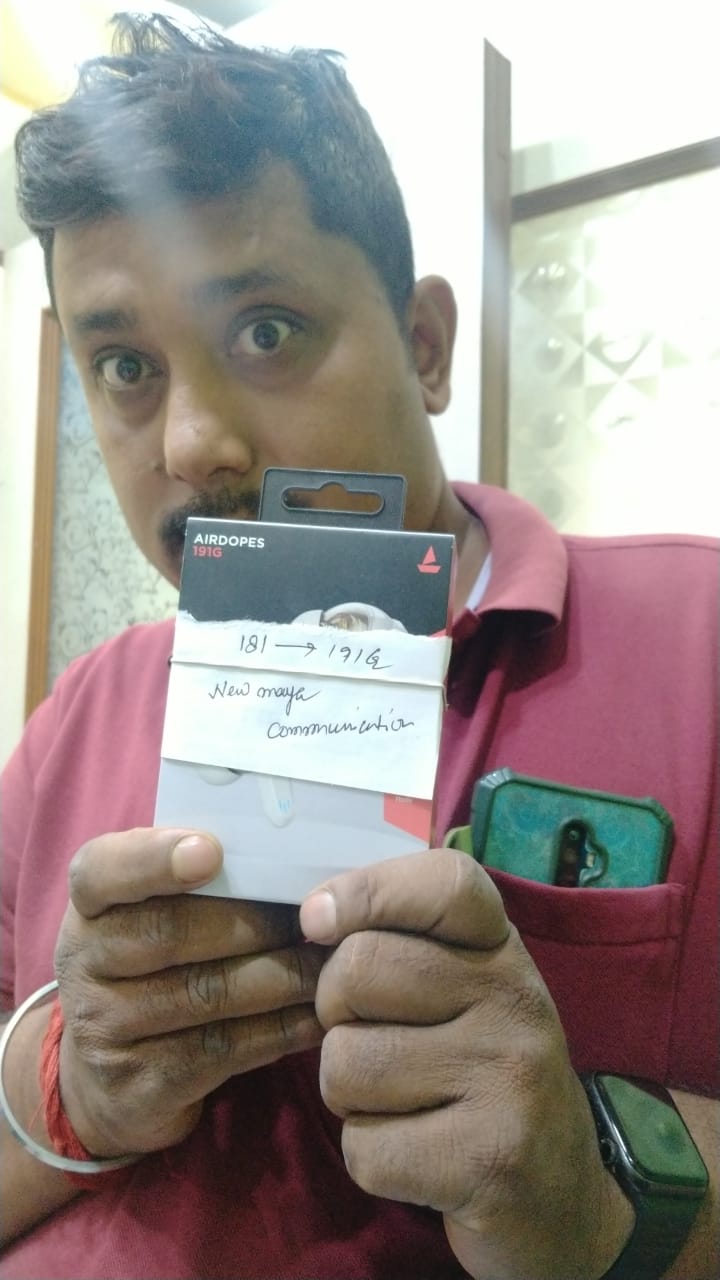 AIRDOPES
191G
181 → 191G
New maya
communication